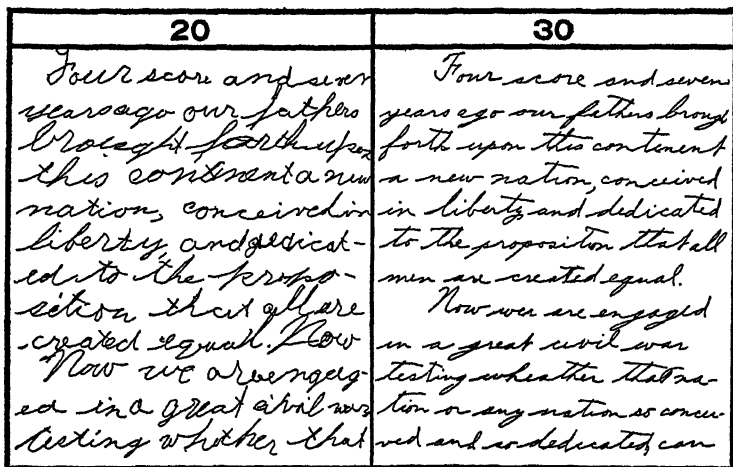 20
Four score and seven
years ago our fathers
brought forth upon
this continent a new
nation, conceived in
liberty, and dedicat-
ed to the propo-
sition that all are
created equal. Now
Now we are engag-
ed in a great civil war
testing whether that
30
Four score and seven
years ago our fathers brough
forth upon this contenent
a new nation, conceived
in liberty and dedicated
to the propositon that all
men are created equal.
Now wer are engaged
in a great civil war
testing wheather that na-
tion or any nation so concei-
ved and so dedicated, can